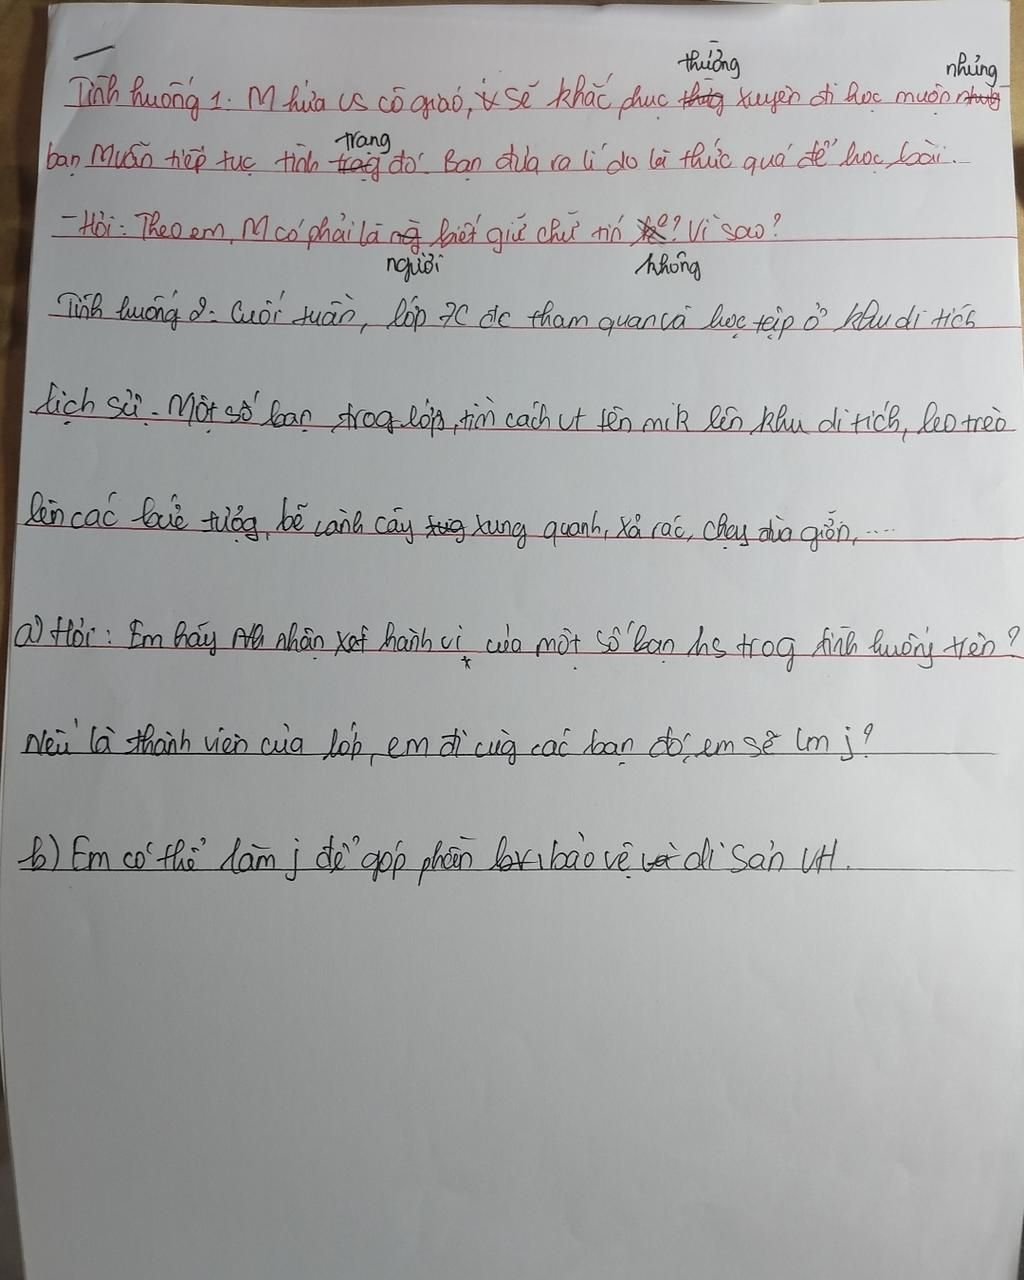 thường những
Tình huống 1. M hứa vs cô giáo, sẽ khắc phục thường xuyên đi học muộn nhưng
trạng
bạn Muốn tiếp tục tình trạg đó. Bạn đưa ra lí do là thức quá để học bài.
- Hỏi: Theo em, M có phải là ng biết giữ chữ tín ko? Vì sao?
người không
Tình huống 2: Cuối tuần, lớp 7C đc tham quan và học tập ở khu di tích
lịch sử. Một số bạn trog lớp, tìm cách vt tên mik lên khu di tích, leo trèo
lên các bức tườg, bẻ cành cây xug xung quanh, xả rác, chạy đùa giỡn, ....
a) Hỏi: Em hãy nhận xét hành vi của một số bạn hs trog tình huống trên?
Nếu là thành viên của lớp, em đi cùg các bạn đó, em sẽ lm j?
b) Em có thể làm j để góp phần bảo vệ di sản VH.